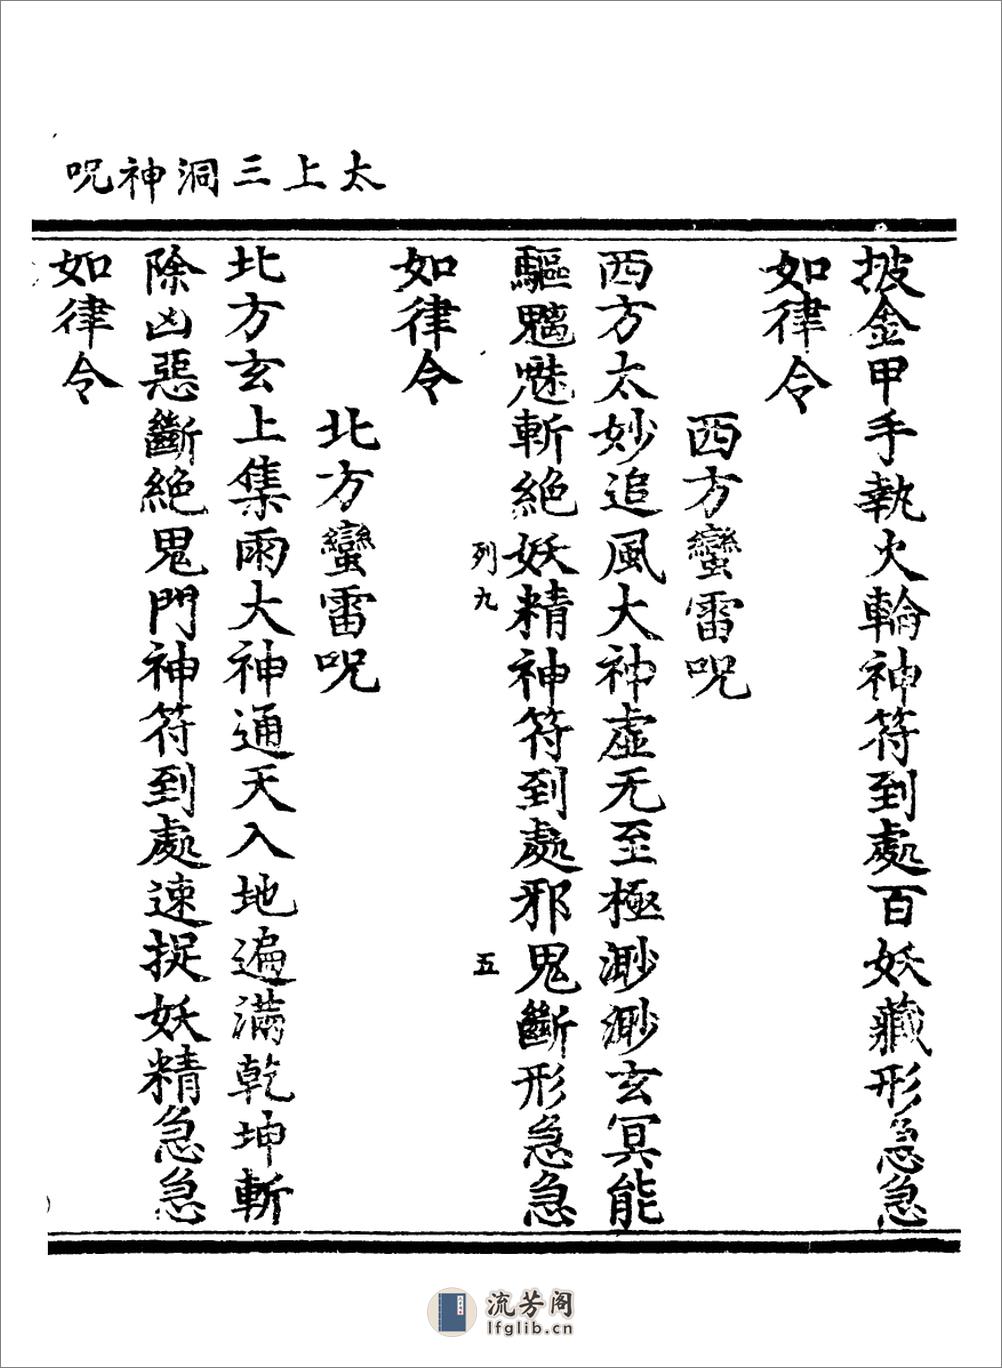 太上三洞神呪
披金甲手執火輪神符到處百妖藏形急急
如律令
西方蠻雷呪
西方太妙追風大神虛无至極渺渺玄冥能
驅魑魅斬絕妖精神符到處邪鬼斷形急急
列九 五
如律令
北方蠻雷呪
北方玄上集雨大神通天入地遍滿乾坤斬
除凶惡斷絕鬼門神符到處速捉妖精急急
如律令
流芳阁
lfglib.cn